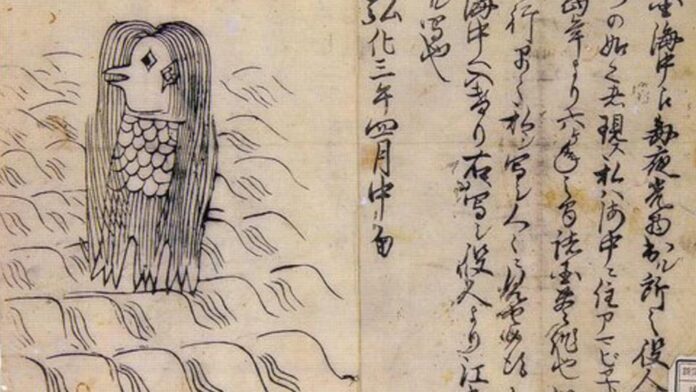 国海中え毎夜光物出ル所之役人
づの如之者現ス私ハ海中ニ住アマビヱ
當年より六ケ年之間諸国豊作也
行早々私ヲ写シ人々ニ見せ候得
海中へ入けり右ハ写シ役人より江
ル写也
弘化三年四月中旬